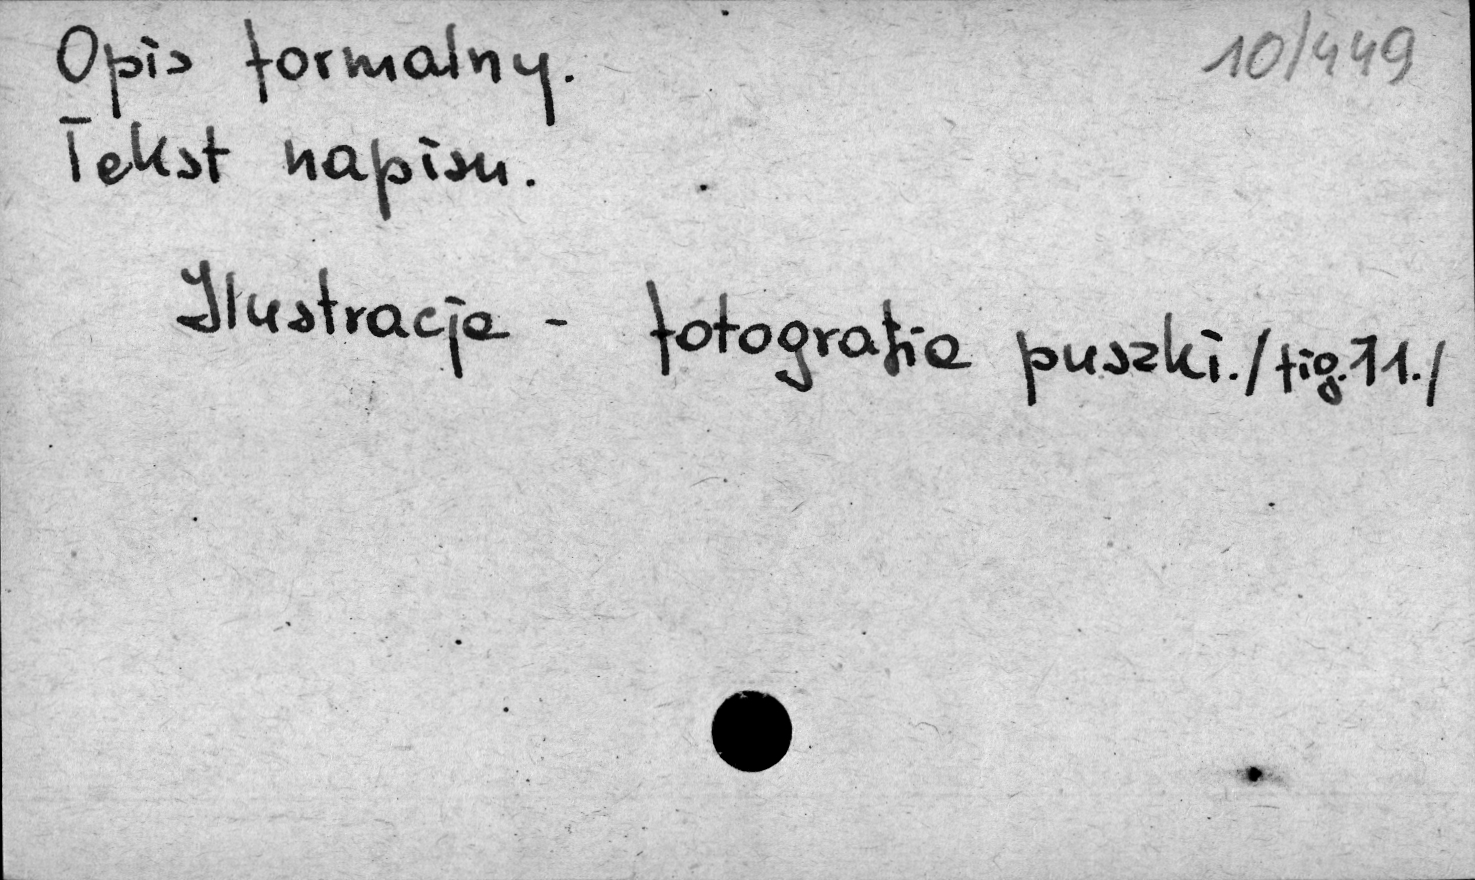 10/449
Opis formalny.
Tekst napisu.
Ilustracje - fotografie puszki./fig.11./